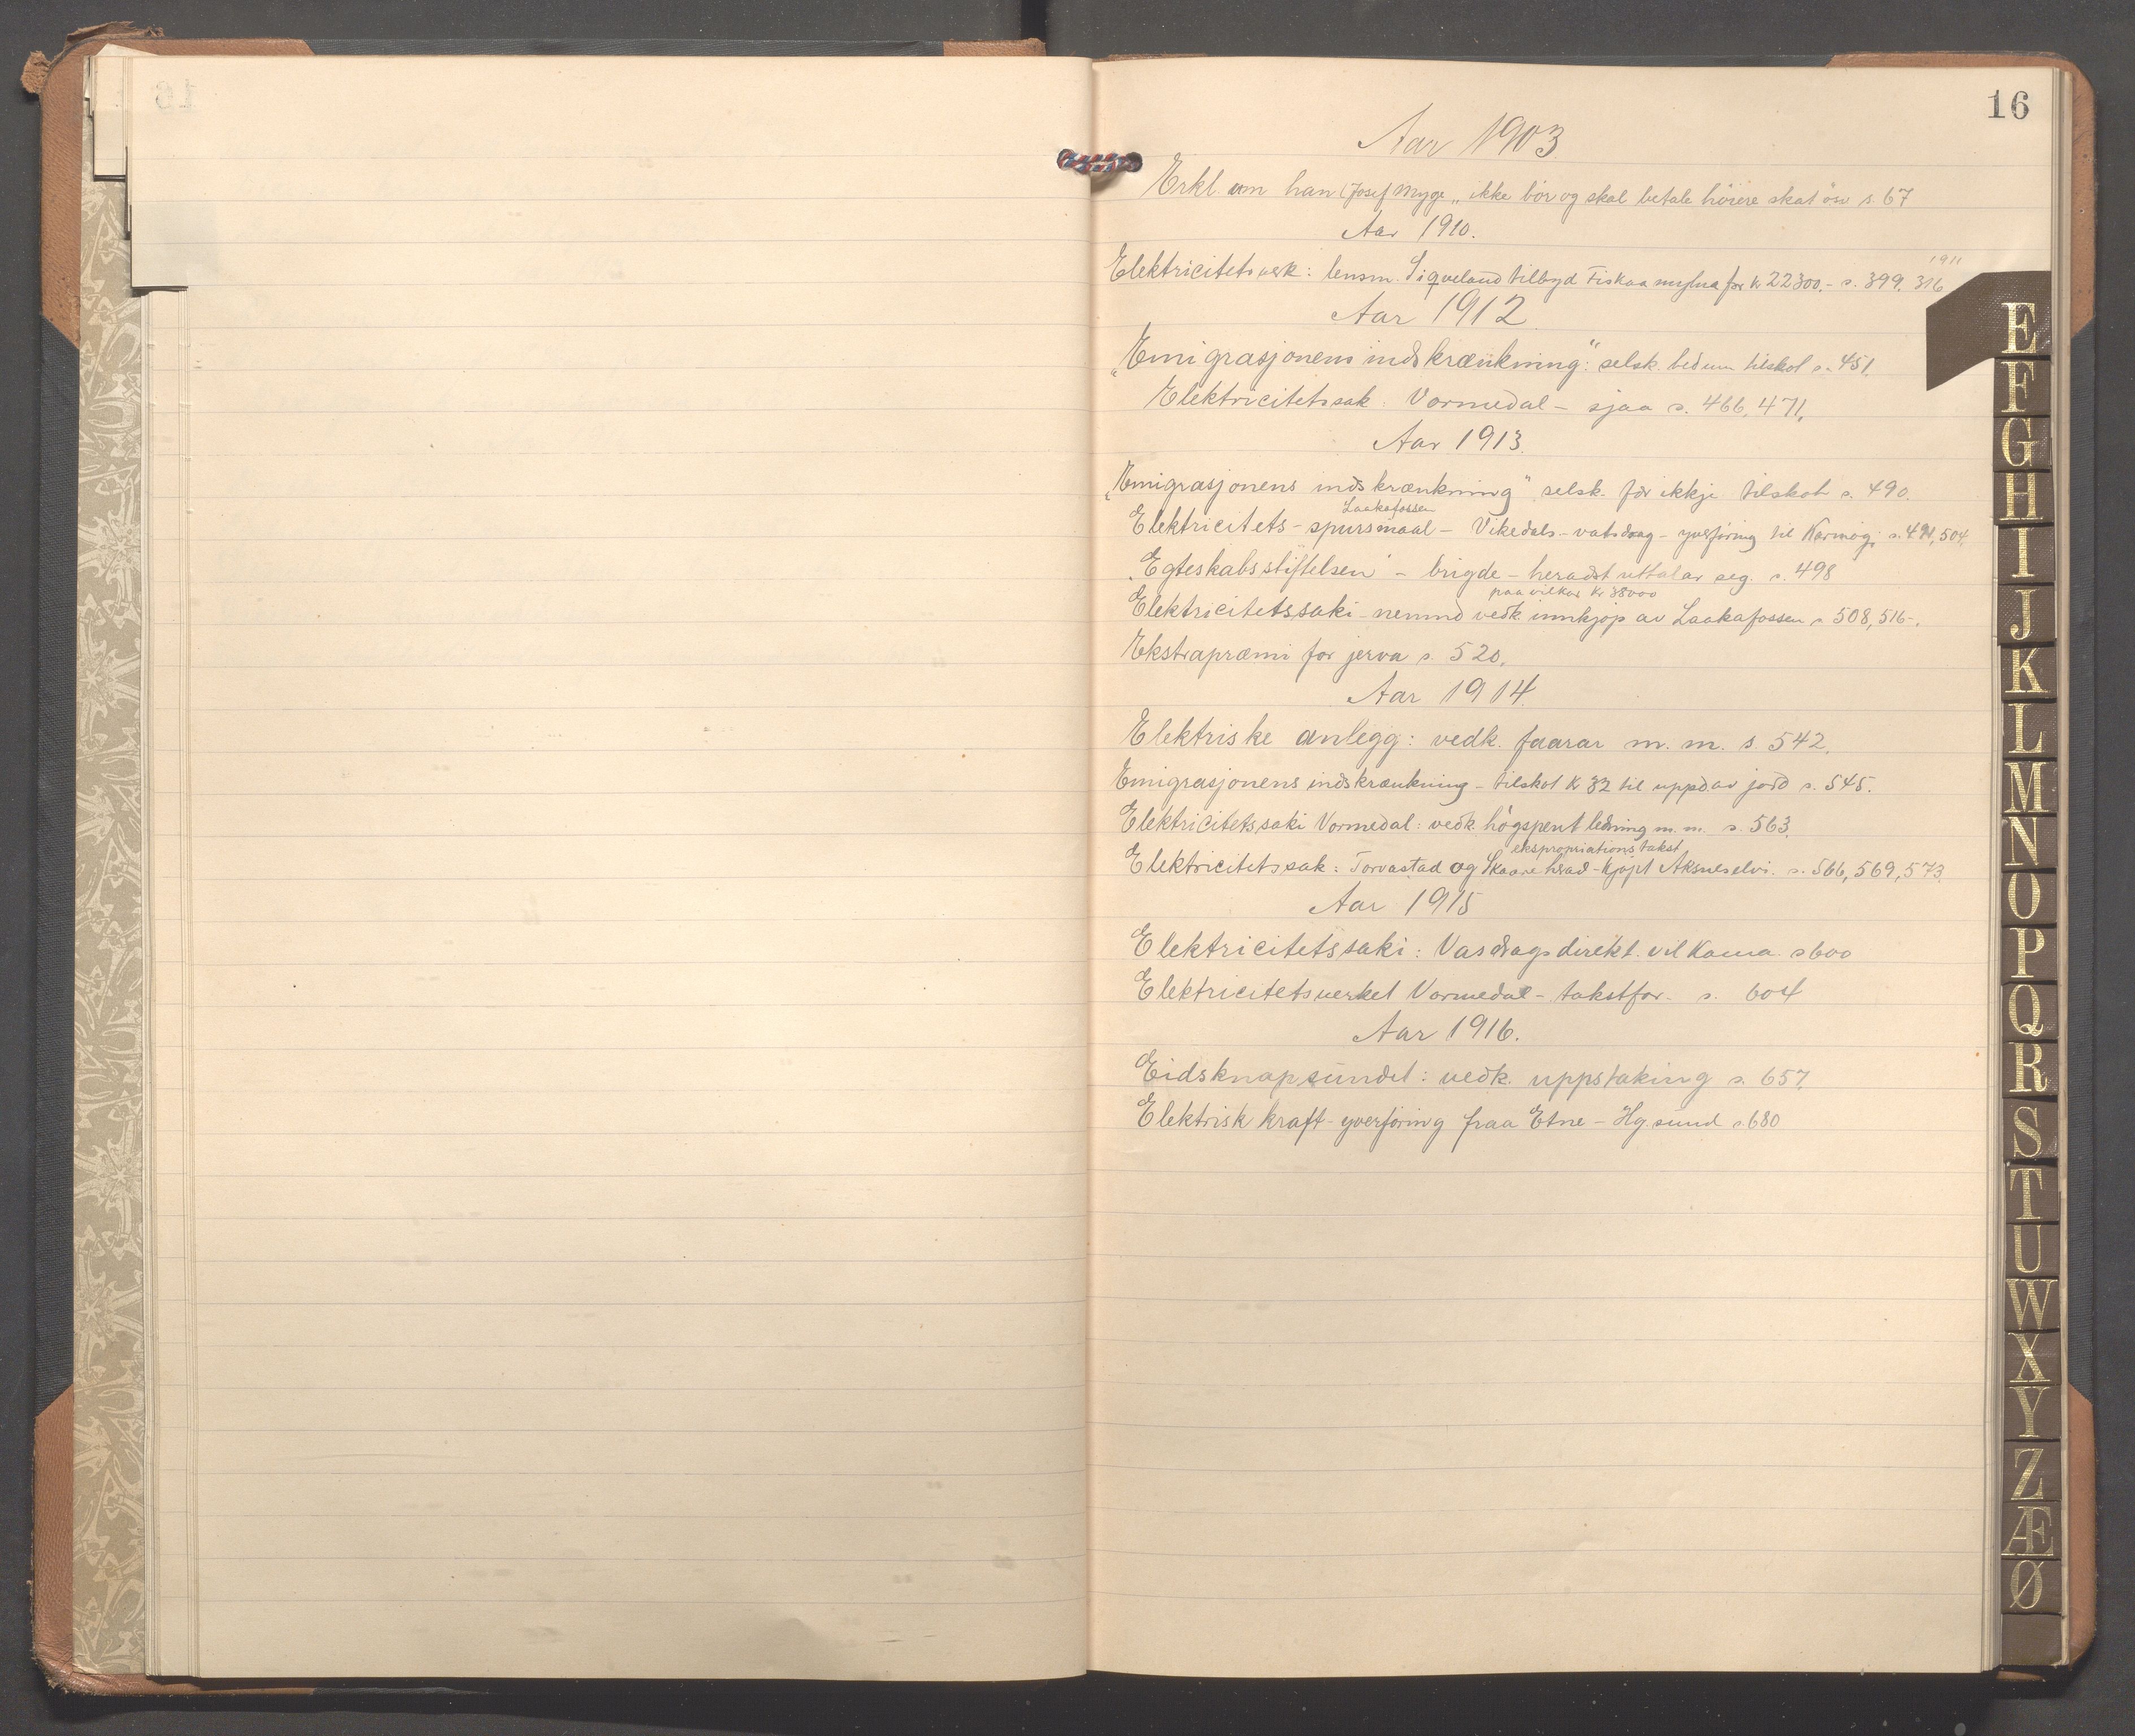 16
Aar 1903
Erkl. um han (Josef Myge „ ikke bör og skal betale höiere skat osv s. 67
Aar 1910.
1911
Elektricitetsverk: lensm. Siqveland tilbyd Fiskaa mylna for kr 22300.- s. 399. 316
Aar 1912
„Emigrasjonens indskrænkning": selsk. bed um tilskot s. 451.
Elektricitetssak Vormedal - sjaa s. 466, 471.
Aar 1913.
„Emigrasjonens indskrænkning" selsk. fær ikkje tilskot s. 490.
Laakafossen
Elektricitets-spursmaal - Vikedals-vatsdrag - yverföring til Karmög s. 491, 504.
„Egteskabsstiftelsen" - brigde - heradst uttalar seg. s. 498
paa vilkaar kr 38000
Elektricitetssaki - nemnd vedk innkjöp av Laakafossen s 508, 516-.
Ekstrapræmi for jerva s. 520.
Aar 1914.
Elektriske anlegg: vedk. faarar m. m. s. 542.
Emigrasjonens indskrænkning - tilskot kr 32 til uppd. av jord s. 545.
Elektricitetssaki Vormedal: vedk. högspent ledning m. m. s. 563.
ekspropriationstakst
Elektricitetssak: Torvastad og Skaare herad - kjöpt Aksneselvi. s. 566, 569, 573.
Aar 1915
Elektricitetssaki: Vasdragsdirekt. vil koma s 600
Elektricitetsverket Vormedal - takstfor. s. 604
Aar 1916.
Eidsknapsundet: vedk. uppstaking s. 657.
Elektrisk kraft-yverföring fraa Etne - Hg.sund s. 680
E
F
G
H
I
J
K
L
M
N
O
P
Q
R
S
T
U
W
X
Y
Z
Æ
Ø